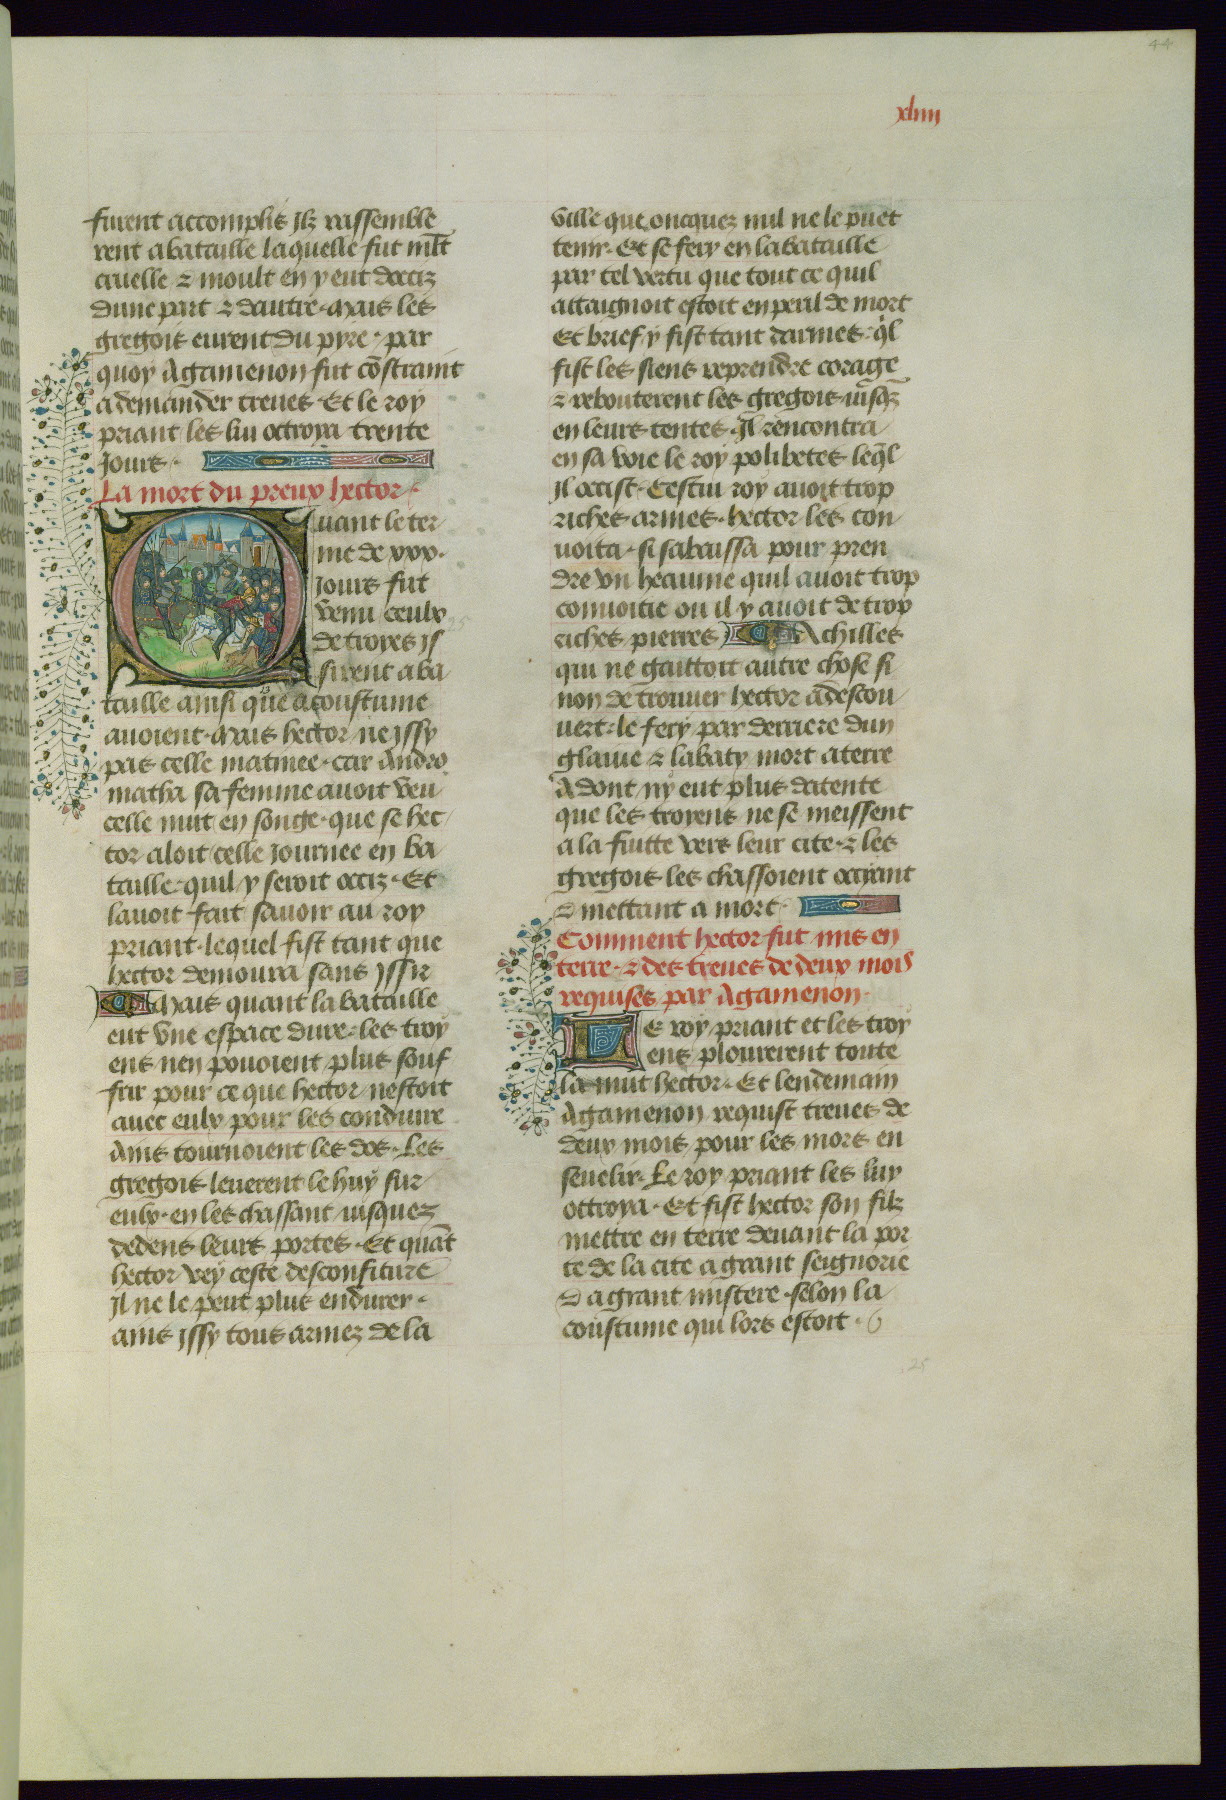 44
xliiii
furent accomplis Ilz rassemble
rent a bataille laquelle fut mlt
cruelle & moult en y eut docciz
dune part & dautre. mais les
gregois eurent du pyre. par
quoy Agamenon fut cõstraint
a demander treues. Et le roy
priant les luy octroya trente
Jours.
La mort du preux hector.
Quant le ter
me de xxx.
Jours fut
venu ceulx
de troyes Js
sirent a ba
taille ainsi que acoustume
auoient. mais hector ne Jssy
pas celle matinee. car Andro
matha sa femme auoit veu
celle nuit en songe. que se hec
tor aloit celle Journee en ba
taille. quil y seroit occiz. Et
lauoit fait sauoir au roy
priant. lequel fist tant que
hector demoura sans Jssir
Mais quant la bataille
eut vne espace dure. les troy
ens nen pouoient plus souf
frir pour ce que hector nestoit
auec eulx pour les conduire
Ains tournoient les dos. Les
gregois leuerent le huy sur
eulx. en les chassant iusquez
dedens leurs portes. Et quãt
hector vey ceste desconfiture
Il ne le peut plus endurer.
ains Jssy tous armez de la
ville que oncquez nul ne le puet
tenir. Et se fery en la bataille
par tel vertu que tout ce quil
attaignoit estoit en peril de mort
Et brief y fist tant darmes. ql
fist les siens reprendre corage
& rebouterent les gregois iusqz
en leurs tentes. Il rencontra
en sa voie le roy polibetes leql
Il occist. Cestui roy auoit trop
riches armes. hector les con
uoita. si sabaissa pour pren
dre vn heaume quil auoit trop
conuoitie ou il y auoit de trop
riches pierres Achilles
qui ne gaittoit autre chose si
non de trouuer hector a descou
uert. le fery par derriere dun
glaiue & labaty mort a terre
Adont ny eut plus datente
que les troyens ne se meissent
a la fuitte vers leur cite. & les
gregois les chassoient occyant
& mettant a mort.
Comment hector fut mis en
terre. & des treues de deux mois
requises par Agamenon.
Le roy priant et les troy
ens plourerent toute
la nuit hector. Et lendemain
Agamenon requist treues de
deux mois pour les mors en
seuelir. Le roy priant les luy
octroya. Et fist hector son filz
mettre en terre deuant la por
te de la cite a grant seignorie
& a grant mistere. selon la
coustume qui lors estoit.
25